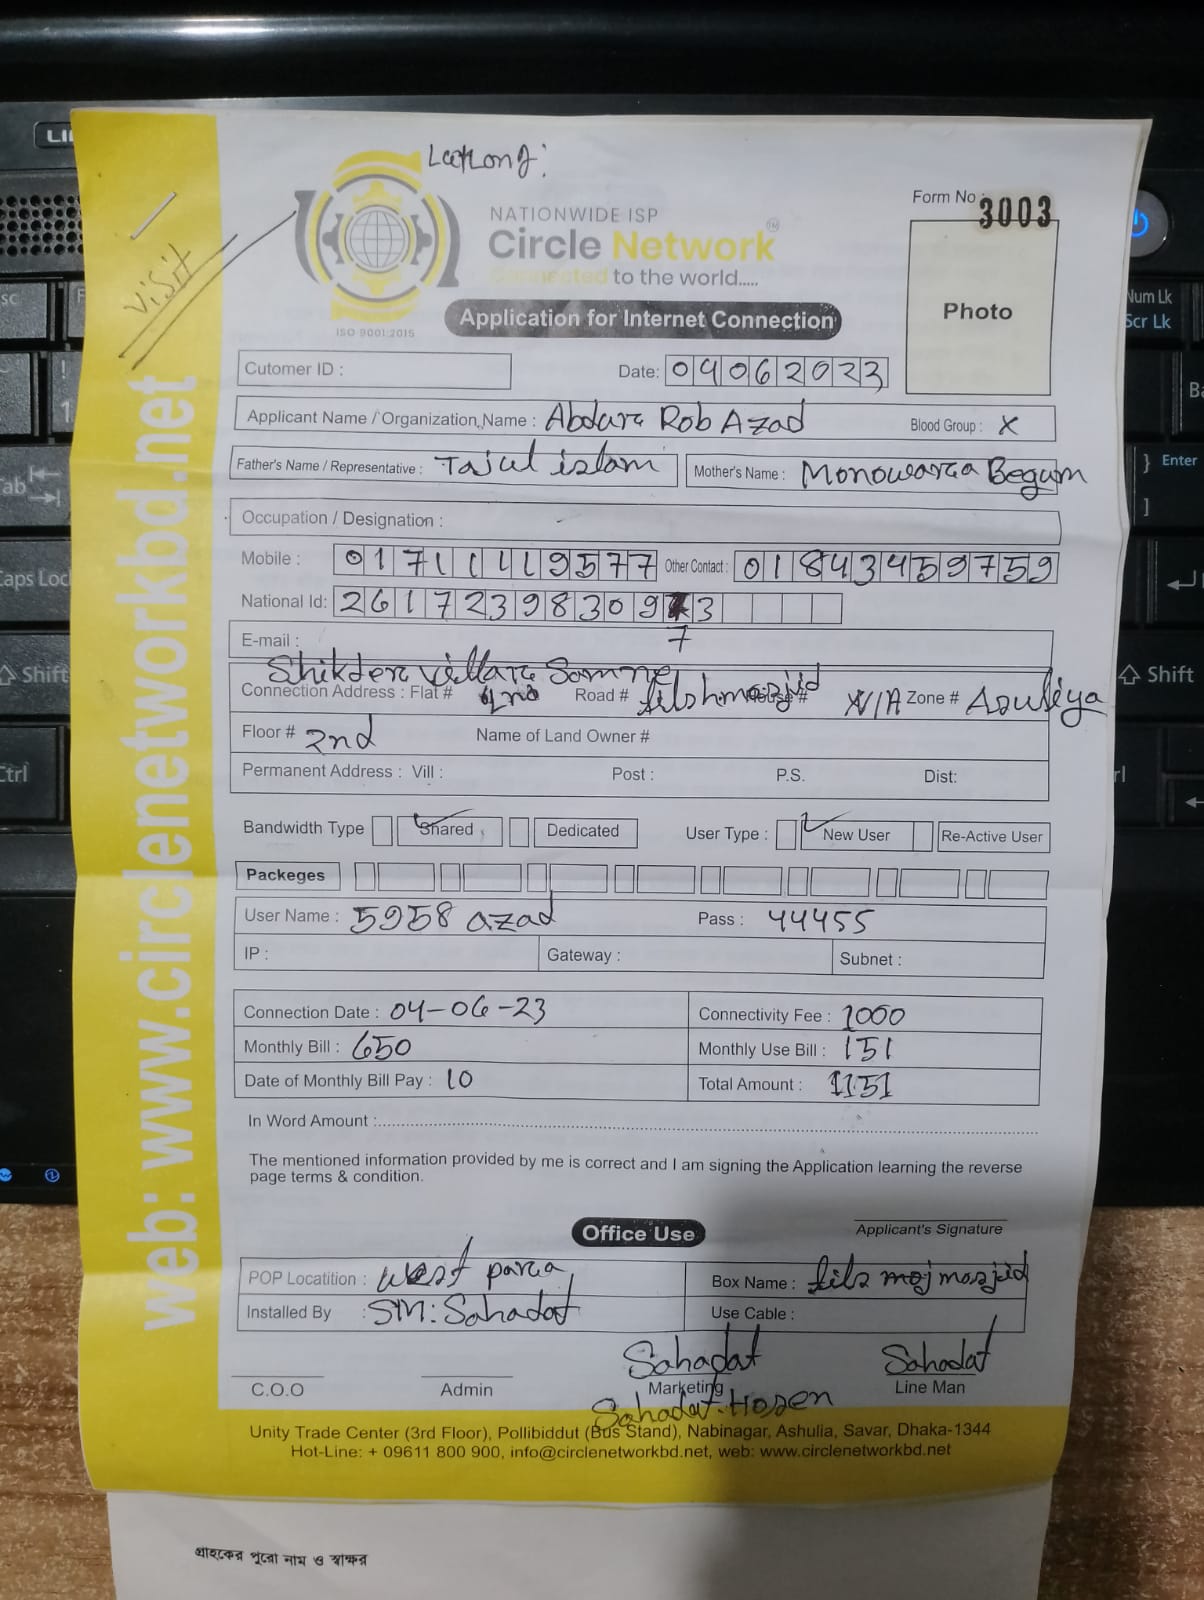 LatLong:
Form No : 3003
NATIONWIDE ISP
Circle Network
Connected to the world.....
ISO 9001:2015
Application for Internet Connection
Photo
visit
Cutomer ID :
Date: 04062023
Applicant Name / Organization Name : Abdura Rob Azad Blood Group : X
Father's Name / Representative : Tajul islam Mother's Name : Monowarea Begum
Occupation / Designation :
Mobile : 01711119577 Other Contact : 01843459759
National Id: 2617239830973
7
E-mail :
Shikder Samne
Connection Address : Flat # 2nd Road # House # N/A Zone # Asuliya
Floor # 2nd Name of Land Owner #
Permanent Address : Vill : Post : P.S. Dist:
Bandwidth Type Shared Dedicated User Type : New User Re-Active User
Packeges
User Name : 5958 azad Pass : 44455
IP : Gateway : Subnet :
Connection Date : 04-06-23 Connectivity Fee : 1000
Monthly Bill : 650 Monthly Use Bill : 151
Date of Monthly Bill Pay : 10 Total Amount : 1151
In Word Amount :
The mentioned information provided by me is correct and I am signing the Application learning the reverse
page terms & condition.
Applicant's Signature
Office Use
POP Locatition : West parea Box Name :
Installed By : SM: Sahadat Use Cable :
Sahadat Sahadat
C.O.O Admin Marketing Line Man
Sahadat Hosen
Unity Trade Center (3rd Floor), Pollibiddut (Bus Stand), Nabinagar, Ashulia, Savar, Dhaka-1344
Hot-Line: + 09611 800 900, info@circlenetworkbd.net, web: www.circlenetworkbd.net
web: www.circlenetworkbd.net
গ্রাহকের পুরো নাম ও স্বাক্ষর
Num Lk
Scr Lk
Enter
Shift
Caps Loc
Shift
Ctrl